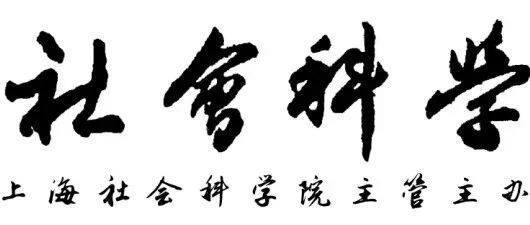 社會科学
上海社会科学院主管主办